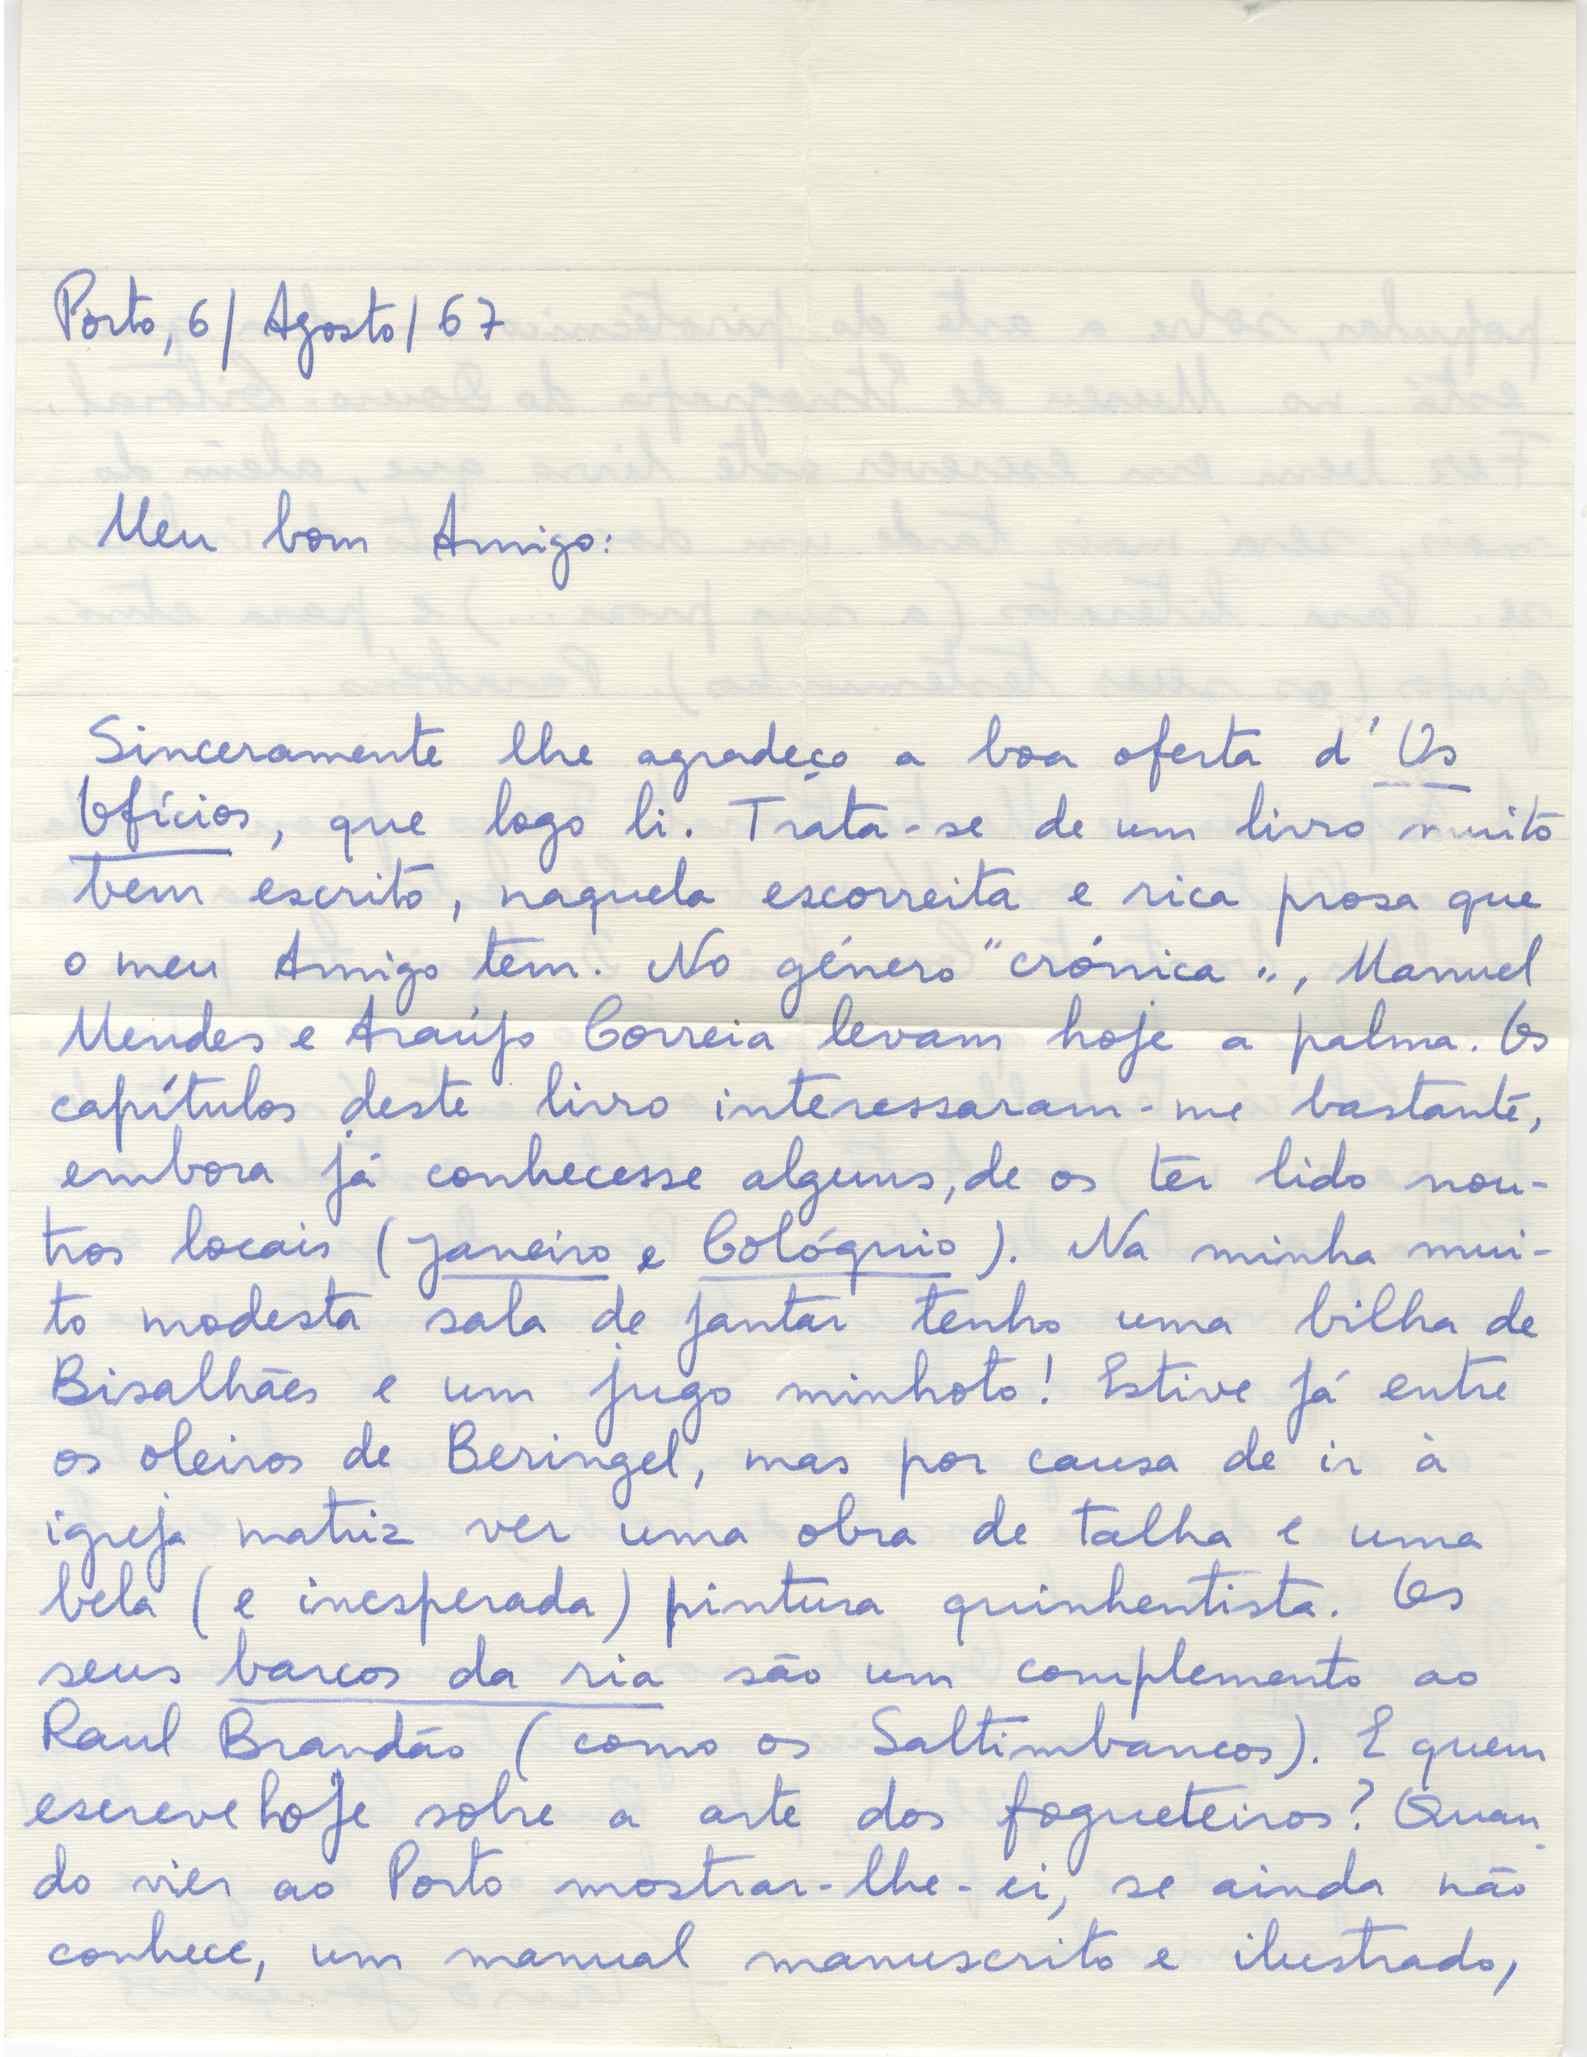 Porto, 6/Agosto/67
Meu bom Amigo:
Sinceramente lhe agradeço a boa oferta d'Os
Ofícios, que logo li. Trata-se de um livro muito
bem escrito, naquela escorreita e rica prosa que
o meu Amigo tem. No género "crónica", Manuel
Mendes e Araújo Correia levam hoje a palma. Os
capítulos deste livro interessaram-me bastante,
embora já conhecesse alguns, de os ter lido nou-
tros locais (Janeiro e Colóquio). Na minha mui-
to modesta sala de jantar tenho uma bilha de
Bisalhães e um jugo minhoto! Estive já entre
os oleiros de Beringel, mas por causa de ir à
igreja matriz ver uma obra de talha e uma
bela (e inesperada) pintura quinhentista. Os
seus barcos da ria são um complemento ao
Raul Brandão (como os Saltimbancos). E quem
escreve hoje sobre a arte dos fogueteiros? Quan-
do vier ao Porto mostrar-lhe-ei, se ainda não
conhece, um manual manuscrito e ilustrado,